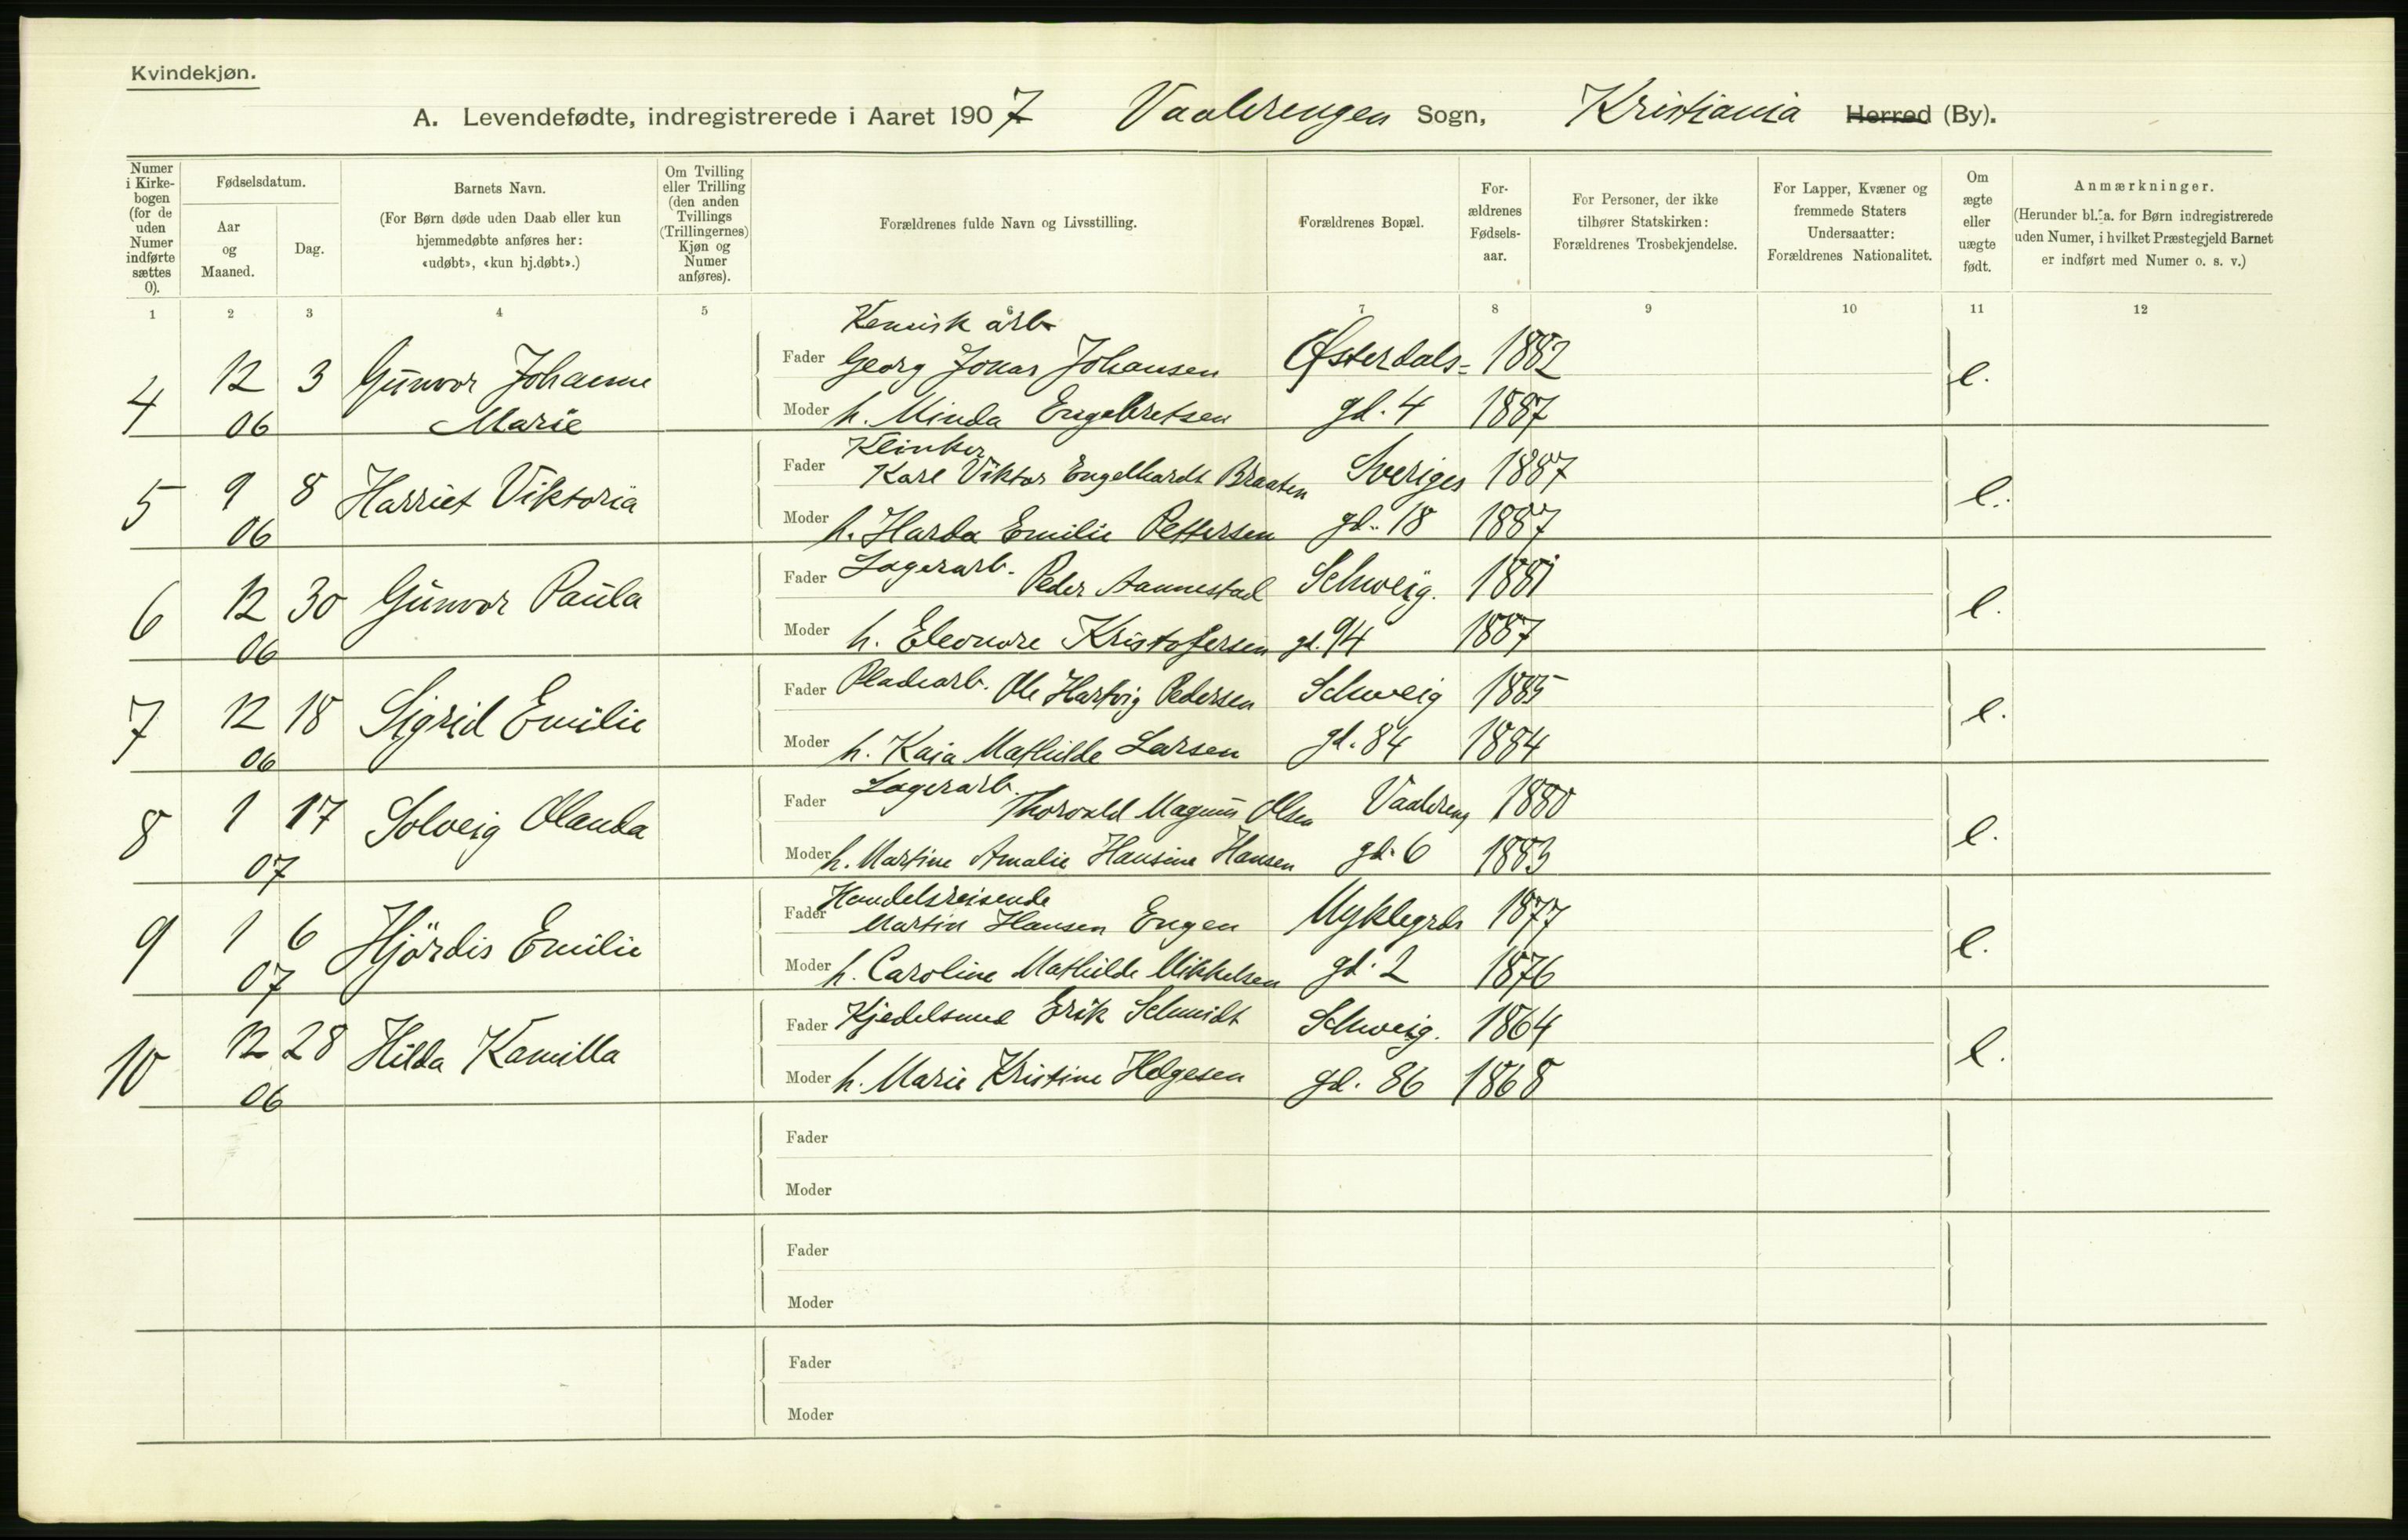 Kvindekjøn.
A. Levendefødte, indregistrerede i Aaret 1907 Vaalerengen Sogn, Kristiania Herred (By).
Numer i Kirkebogen (for de uden Numer indførte sættes 0).
Fødselsdatum.
Aar og Maaned.
Dag.
Barnets Navn.
(For Børn døde uden Daab eller kun hjemmedøbte anføres her: «udøbt», «kun hj.døbt».)
Om Tvilling eller Trilling (den anden Tvillings (Trillingernes) Kjøn og Numer anføres).
Forældrenes fulde Navn og Livsstilling.
Forældrenes Bopæl.
Forældrenes Fødselsaar.
For Personer, der ikke tilhører Statskirken: Forældrenes Trosbekjendelse.
For Lapper, Kvæner og fremmede Staters Undersaatter: Forældrenes Nationalitet.
Om ægte eller uægte født.
Anmærkninger.
(Herunder bl. a. for Børn indregistrerede uden Numer, i hvilket Præstegjeld Barnet er indført med Numer o. s. v.)
1 2 3 4 5 6 7 8 9 10 11 12
Kemisk arb.
4 12 3 Gunvor Johanne Fader Georg Jonas Johansen Østerdals- 1882 e.
06 Marie Moder h. Minda Engebretsen gd. 4 1887
Klinker
5 9 8 Harriet Viktoria Fader Karl Viktor Engelhardt Braaten Sveriges 1887 e.
06 Moder h. Harda Emilie Pettersen gd. 18 1887
6 12 30 Gunvor Paula Fader Lagerarb. Peder Aannestad Schweig. 1881 e.
06 Moder h. Eleonore Kristofersen gd. 94 1887
7 12 18 Sigrid Emilie Fader Pladearb. Ole Hartvig Pedersen Schweig 1885 e.
06 Moder h. Kaja Mathilde Larsen gd. 84 1884
8 1 17 Solveig Olanda Fader Lagerarb. Thorvald Magnus Olsen Vaalereng 1880 e.
07 Moder h. Martine Amalie Hansine Hansen gd. 6 1883
Handelsreisende
9 1 6 Hjördis Emilie Fader Martin Hansen Engen Myklegrds 1877 e.
07 Moder h. Caroline Mathilde Mikkelsen gd. 2 1876
10 12 28 Hilda Kamilla Fader Kjedelsmed Erik Schmidt Schweig. 1864 e.
06 Moder h. Marie Kristine Helgesen gd. 86 1868
Fader
Moder
Fader
Moder
Fader
Moder